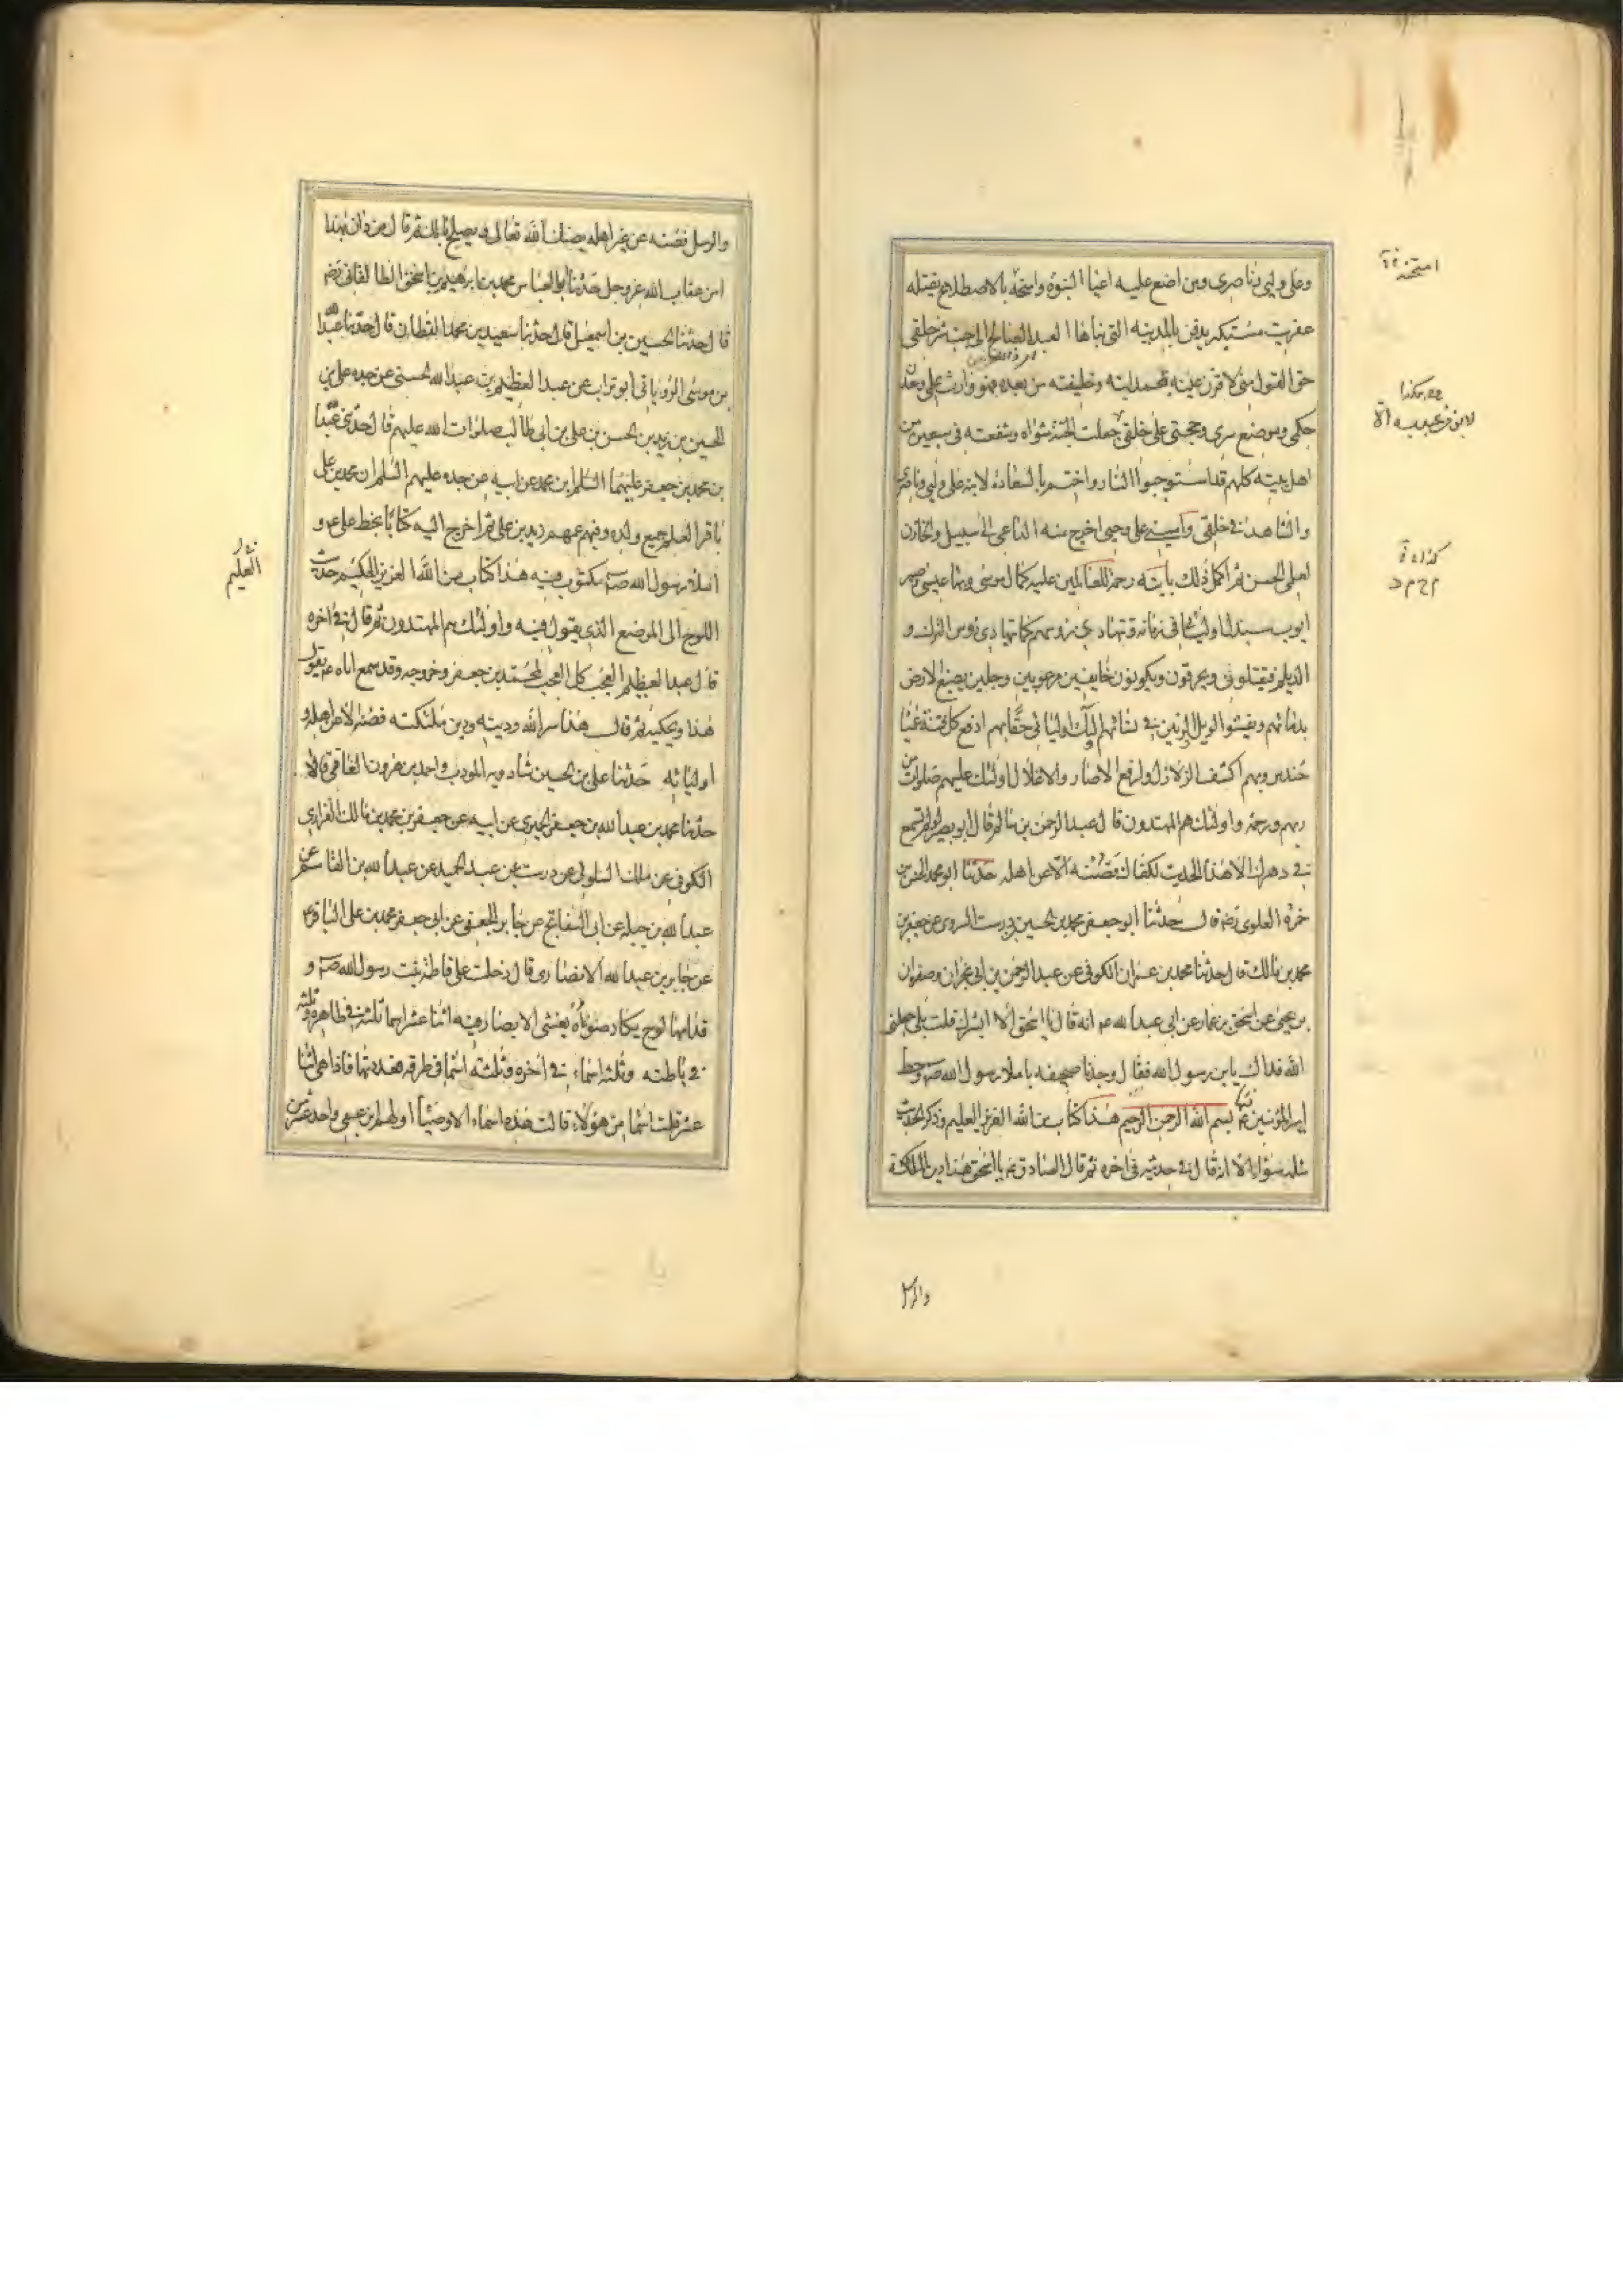 وعلي وليي وناصري ومن اضع عليه اعباا النبوة وامتحنه بالاضطلاع يقتله
عفريت مستكبر يدفن بالمدينه التي بناها العبد الصالح الى جنب شر خلقي
حق القول مني لاقرن عينه بمحمد ابنه وخليفته من بعده فهو وارث علمي ومعدن
حكمي وموضع سري وحجتي على خلقي جعلت الجنة مثواه وشفعته في سبعين من
اهل بيته كلهم قد استوجبوا النار واختم بالسعادة لابنه علي وليي وناصري
والشاهد في خلقي واميني على وحيي اخرج منه الداعي الى سبيلي والخازن
لعلمي الحسن ثم اكمل ذلك بابنه رحمة للعالمين عليه كمال موسى وبهاء عيسى وصبر
ايوب سيذل اوليائي في زمانه وتتهادى رؤسهم كما تهادى رؤس الترك و
الديلم فيقتلون ويحرقون ويكونون خايفين مرعوبين وجلين يصبغ الارض
بدمائهم ويفشوا الويل والرنين في نسائهم اولئك اوليائي حقا بهم ادفع كل فتنة عمياء
حندس وبهم اكشف الزلازل وارفع الاصار والاغلال اولئك عليهم صلوات من
ربهم ورحمة واولئك هم المهتدون قال عبد الرحمن بن سالم قال ابو بصير لو لم تسمع
في دهرك الا هذا الحديث لكفاك فصنه الا عن اهله حدثنا ابو محمد الحسن بن
حمزة العلوي رضه قال حدثنا ابو جعفر محمد بن الحسين بن درست السروي عن جعفر بن
محمد بن مالك قال حدثنا محمد بن عمران الكوفي عن عبد الرحمن بن ابي نجران وصفوان
بن يحيى عن اسحق بن عمار عن ابي عبد الله عم انه قال يا اسحق الا ابشرك قلت بلى جعلني
الله فداك يابن رسول الله فقال وجدنا صحيفه باملاء رسول الله صم وخط
امير المؤمنين عم بسم الله الرحمن الرحيم هذا كتاب من الله العزيز العليم وذكر الحديث
مثله سواء الا انه قال في حديثه في اخره ثم قال الصادق عم يا اسحق هذا دين الملائكة
والرسل
والرسل فصنه عن غير اهله يصنك الله تعالى ويصلح بالك ثم قال من دان بهذا
امن عقاب الله عز وجل حدثنا ابو العباس محمد بن ابرهيم بن اسحق الطالقاني رضه
قال حدثنا الحسين بن اسمعيل قال حدثنا سعيد بن محمد القطان قال حدثنا عبد الله
بن موسى الروياني ابو تراب عن عبد العظيم بن عبد الله الحسني عن جده علي بن
الحسين بن زيد بن الحسن بن علي بن ابي طالب صلوات الله عليهم قال حدثني عبد الله
بن محمد بن جعفر عليهما السلم ابن محمد عن ابيه عن جده عليهم السلم ان محمد بن علي
باقر العلم جمع ولده وفيهم عمهم زيد بن علي ثم اخرج اليه كتابا بخط علي عم و
املاء رسول الله صم مكتوب فيه هذا كتاب من الله العزيز الحكيم حديث
اللوح الى الموضع الذي يقول فيه واولئك هم المهتدون ثم قال في اخره
قال عبد العظيم العجب كل العجب لمحمد بن جعفر وخروجه وقد سمع اباه عم يقول
هذا ويحكيه ثم قال هذا سر الله ودينه ودين ملئكته فصنه الا عن اهله و
اوليائه حدثنا علي بن الحسين شادويه المودب واحمد بن هرون الفامي قالا
حدثنا محمد بن عبد الله بن جعفر الحميري عن ابيه عن جعفر بن محمد بن مالك الفزاري
الكوفي عن مالك السلولي عن درست عن عبد الحميد عن عبد الله بن القاسم عن
عبد الله بن جبله عن ابي السفاتج عن جابر الجعفي عن ابي جعفر محمد بن علي الباقر عم
عن جابر بن عبد الله الانصاري قال دخلت على فاطمة بنت رسول الله صم و
قدامها لوح يكاد ضوءه يغشى الابصار فيه اثنا عشر اسما ثلثة في ظاهره وثلثه
في باطنه وثلثه اسماء في اخره وثلثه اسما في طرفه فعددتها فاذا هي اثنا
عشر قلت اسما من هؤلاء قالت هذه اسماء الاوصياء اولهم ابن عمي واحد عشر من
العليم